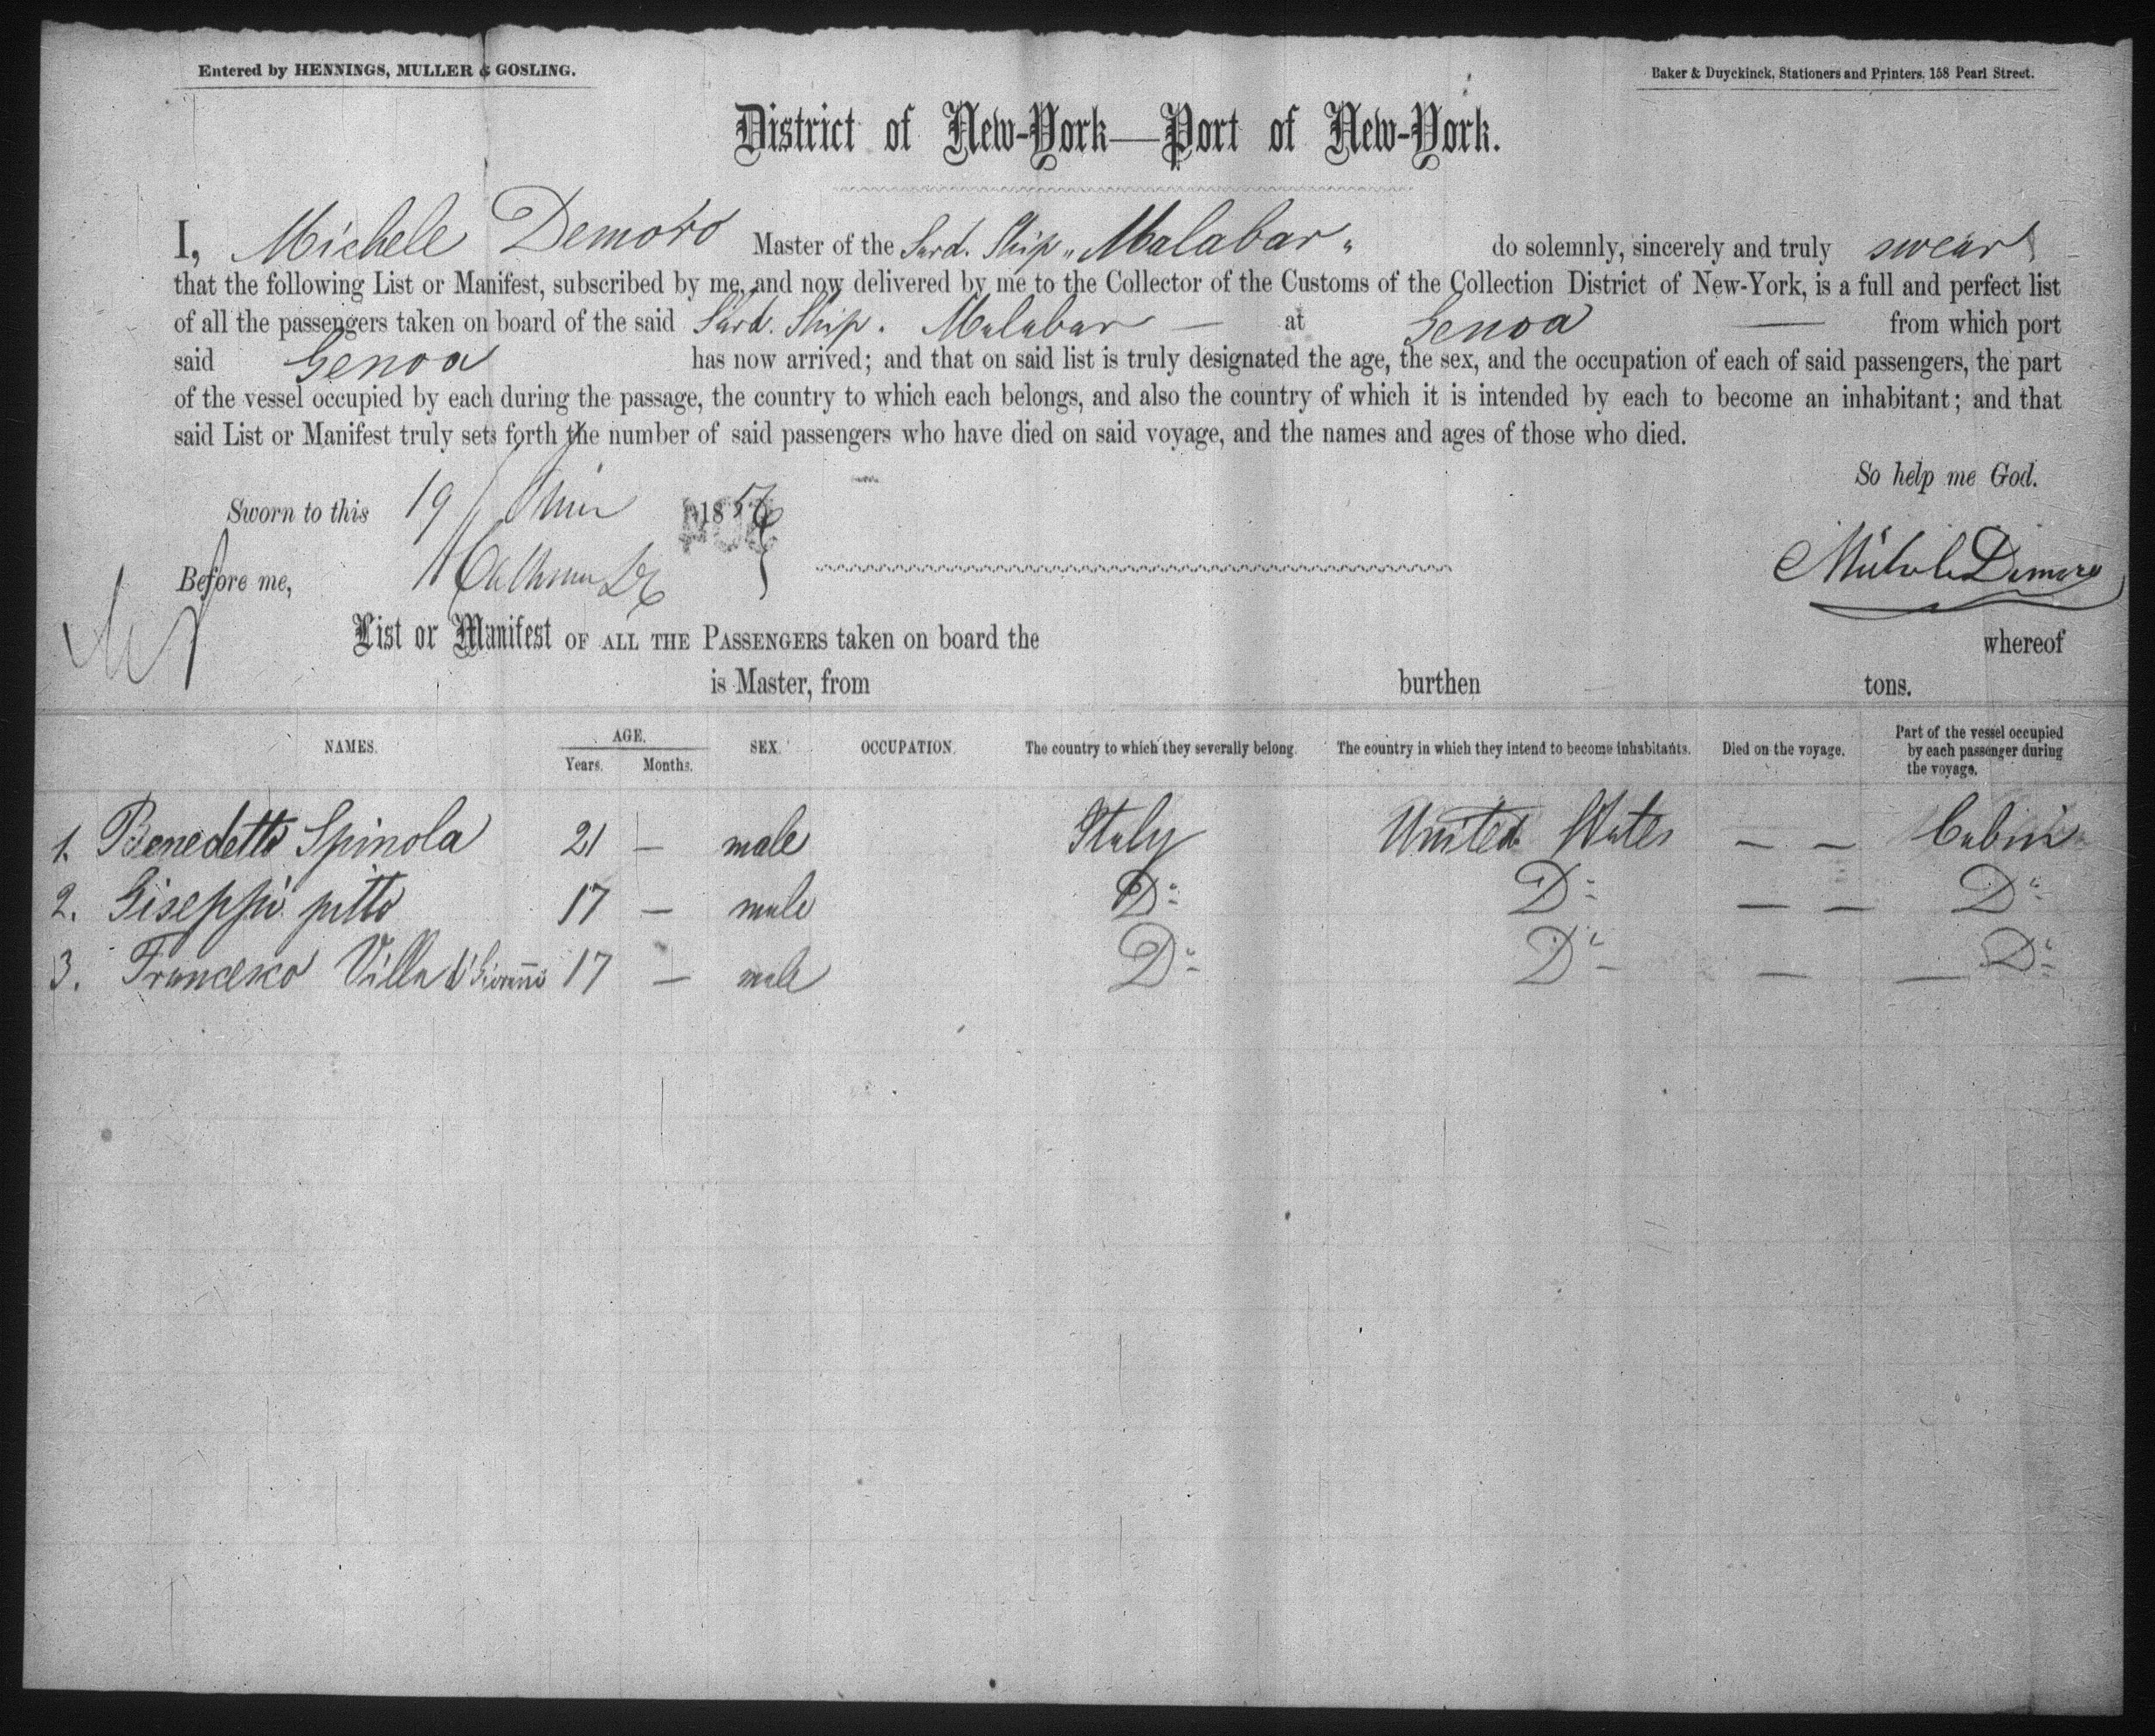 Entered by HENNINGS, MULLER & GOSLING.
Baker & Duyckinck, Stationers and Printers, 158 Pearl Street.
District of New-York—Port of New-York.
I, Michele Demoro Master of the Sard. Ship „Malabar„ do solemnly, sincerely and truly swear
that the following List or Manifest, subscribed by me, and now delivered by me to the Collector of the Customs of the Collection District of New-York, is a full and perfect list
of all the passengers taken on board of the said Sard. Ship. Malabar — at Genoa — from which port
said Genoa has now arrived; and that on said list is truly designated the age, the sex, and the occupation of each of said passengers, the part
of the vessel occupied by each during the passage, the country to which each belongs, and also the country of which it is intended by each to become an inhabitant; and that
said List or Manifest truly sets forth the number of said passengers who have died on said voyage, and the names and ages of those who died.
So help me God.
Sworn to this 19 1856
Before me,
List or Manifest OF ALL THE PASSENGERS taken on board the whereof
is Master, from burthen tons.
NAMES. AGE. Years. Months. SEX. OCCUPATION. The country to which they severally belong. The country in which they intend to become inhabitants. Died on the voyage. Part of the vessel occupied by each passenger during the voyage.
1. Benedetto Spinola 21 — male Italy United States — — Cabin
2. Giseppi pitto 17 — male Do Do — — Do
3. Francesco Villa 17 — male Do Do — — Do